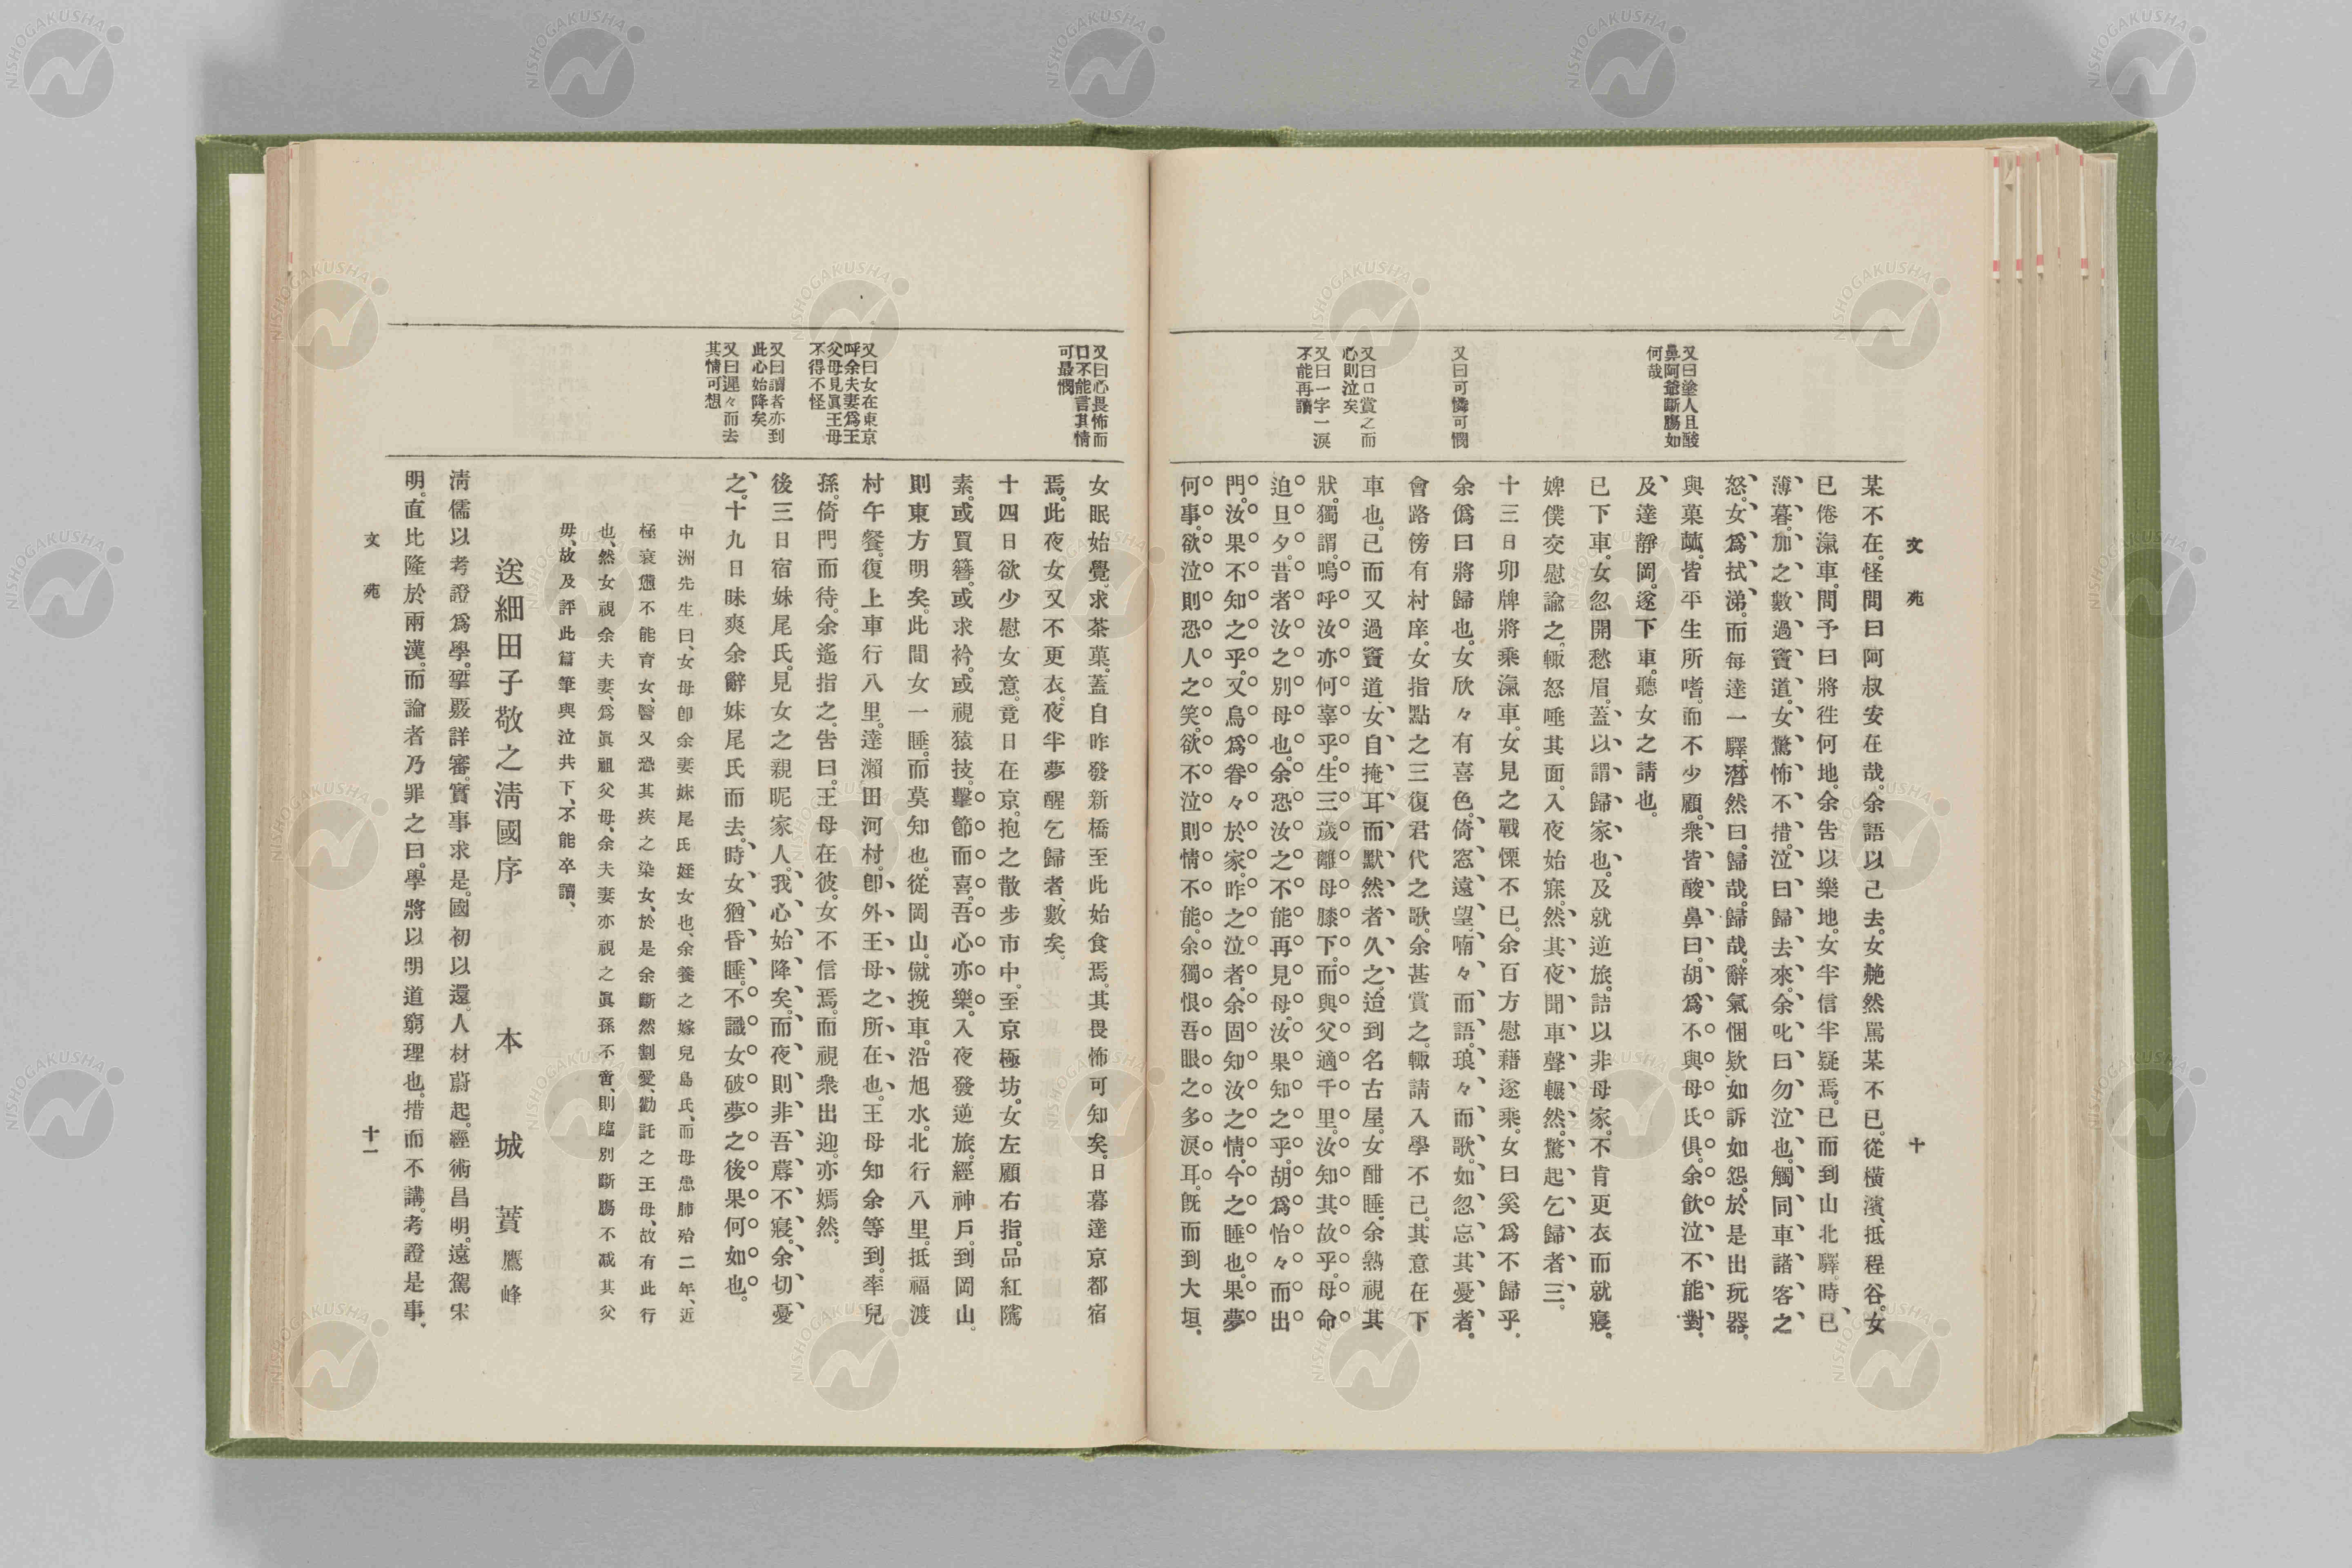 文苑
十
又曰塗人且酸
鼻阿爺斷膓如
何哉
又曰可憐可憫
又曰口賞之而
心則泣矣
又曰一字一淚
不能再讀
某不在。怪問曰阿叔安在哉。余語以己去。女艴然罵某不已。從橫濱、抵程谷。女
已倦滊車。問予曰將往何地。余告以樂地。女半信半疑焉。已而到山北驛。時已
薄暮。加之數過竇道。女驚怖不措。泣曰歸去來。余叱曰勿泣也。觸同車諸客之
怒。女爲拭涕。而每達一驛、潸然曰。歸哉。歸哉。辭氣悃欵如訴如怨。於是出玩器。
與菓蓏。皆平生所嗜。而不少顧。衆皆酸鼻曰。胡爲不與母氏俱。余飮泣不能對。
及達靜岡。遂下車。聽女之請也。
已下車。女忽開愁眉。蓋以謂歸家也。及就逆旅。詰以非母家。不肯更衣而就寢。
婢僕交慰諭之。輙怒唾其面。入夜始寐。然其夜聞車聲轣然。驚起乞歸者三。
十三日卯牌將乘滊車。女見之戰慄不已。余百方慰藉遂乘。女曰奚爲不歸乎。
余僞曰將歸也。女欣々有喜色。倚窓遠望。喃々而語。琅々而歌。如忽忘其憂者。
會路傍有村庠。女指點之三復君代之歌。余甚賞之。輙請入學不已。其意在下
車也。已而又過竇道。女自掩耳而默然者久之。迨到名古屋。女酣睡。余熟視其
狀。獨謂。嗚呼汝亦何辜乎。生三歲離母膝下。而與父適千里。汝知其故乎。母命
迫旦夕。昔者汝之別母也。余恐汝之不能再見母。汝果知之乎。胡爲怡々而出
門。汝果不知之乎。又烏爲眷々於家。昨之泣者。余固知汝之情。今之睡也。果夢
何事。欲泣則恐人之笑。欲不泣則情不能。余獨恨吾眼之多淚耳。旣而到大垣。
又曰心畏怖而
口不能言其情
可最憫
又曰女在東京
呼余夫妻爲王
父母見眞王母
不得不怪
又曰讀者亦到
此心始降矣
又曰遲々而去
其情可想
女眠始覺。求茶菓。蓋自昨發新橋至此始食焉。其畏怖可知矣。日暮達京都宿
焉。此夜女又不更衣。夜半夢醒乞歸者、數矣。
十四日欲少慰女意。竟日在京。抱之散步市中。至京極坊。女左顧右指。品紅隲
素。或買簪。或求衿。或視猿技。擊節而喜。吾心亦樂。入夜發逆旅。經神戶。到岡山。
則東方明矣。此間女一睡。而莫知也。從岡山。僦挽車。沿旭水。北行八里。抵福渡
村午餐。復上車行八里。達瀨田河村。卽外王母之所在也。王母知余等到。率兒
孫。倚門而待。余遙指之。告曰。王母在彼。女不信焉。而視衆出迎。亦嫣然。
後三日宿妹尾氏。見女之親昵家人。我心始降矣。而夜則非吾蓐不寢。余切憂
之。十九日昧爽余辭妹尾氏而去。時女猶昏睡。不識女破夢之後果何如也。
中洲先生曰、女母卽余妻妹尾氏姪女也、余養之嫁兒島氏、而母患肺殆二年、近
極衰憊不能育女、醫又恐其疾之染女、於是余斷然割愛、勸託之王母、故有此行
也、然女視余夫妻、爲眞祖父母、余夫妻亦視之眞孫不啻、則臨別斷膓不減其父
毋、故及評此篇筆與泣共下、不能卒讀、
送細田子敬之淸國序
本城蕢鷹峰
淸儒以考證爲學。揅覈詳審。實事求是。國初以還。人材蔚起。經術昌明。遠駕宋
明。直比隆於兩漢。而論者乃罪之曰。學將以明道窮理也。措而不講。考證是事。
文苑
十一